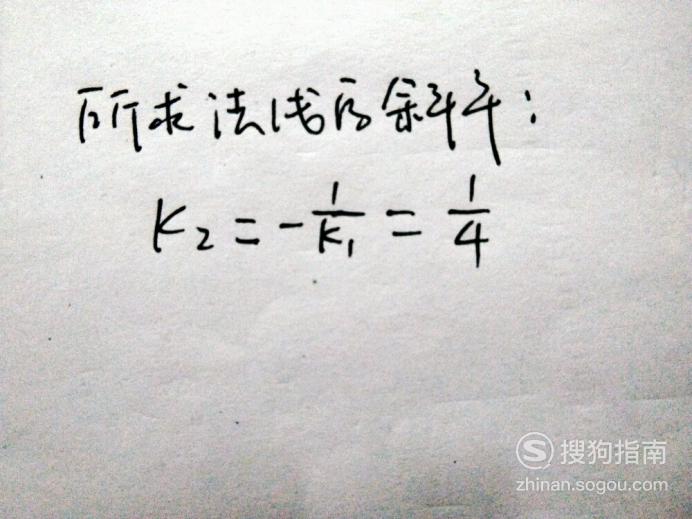 所求法线的斜率:
K₂ = -1/K₁ = 1/4
搜狗指南
zhinan.sogou.com